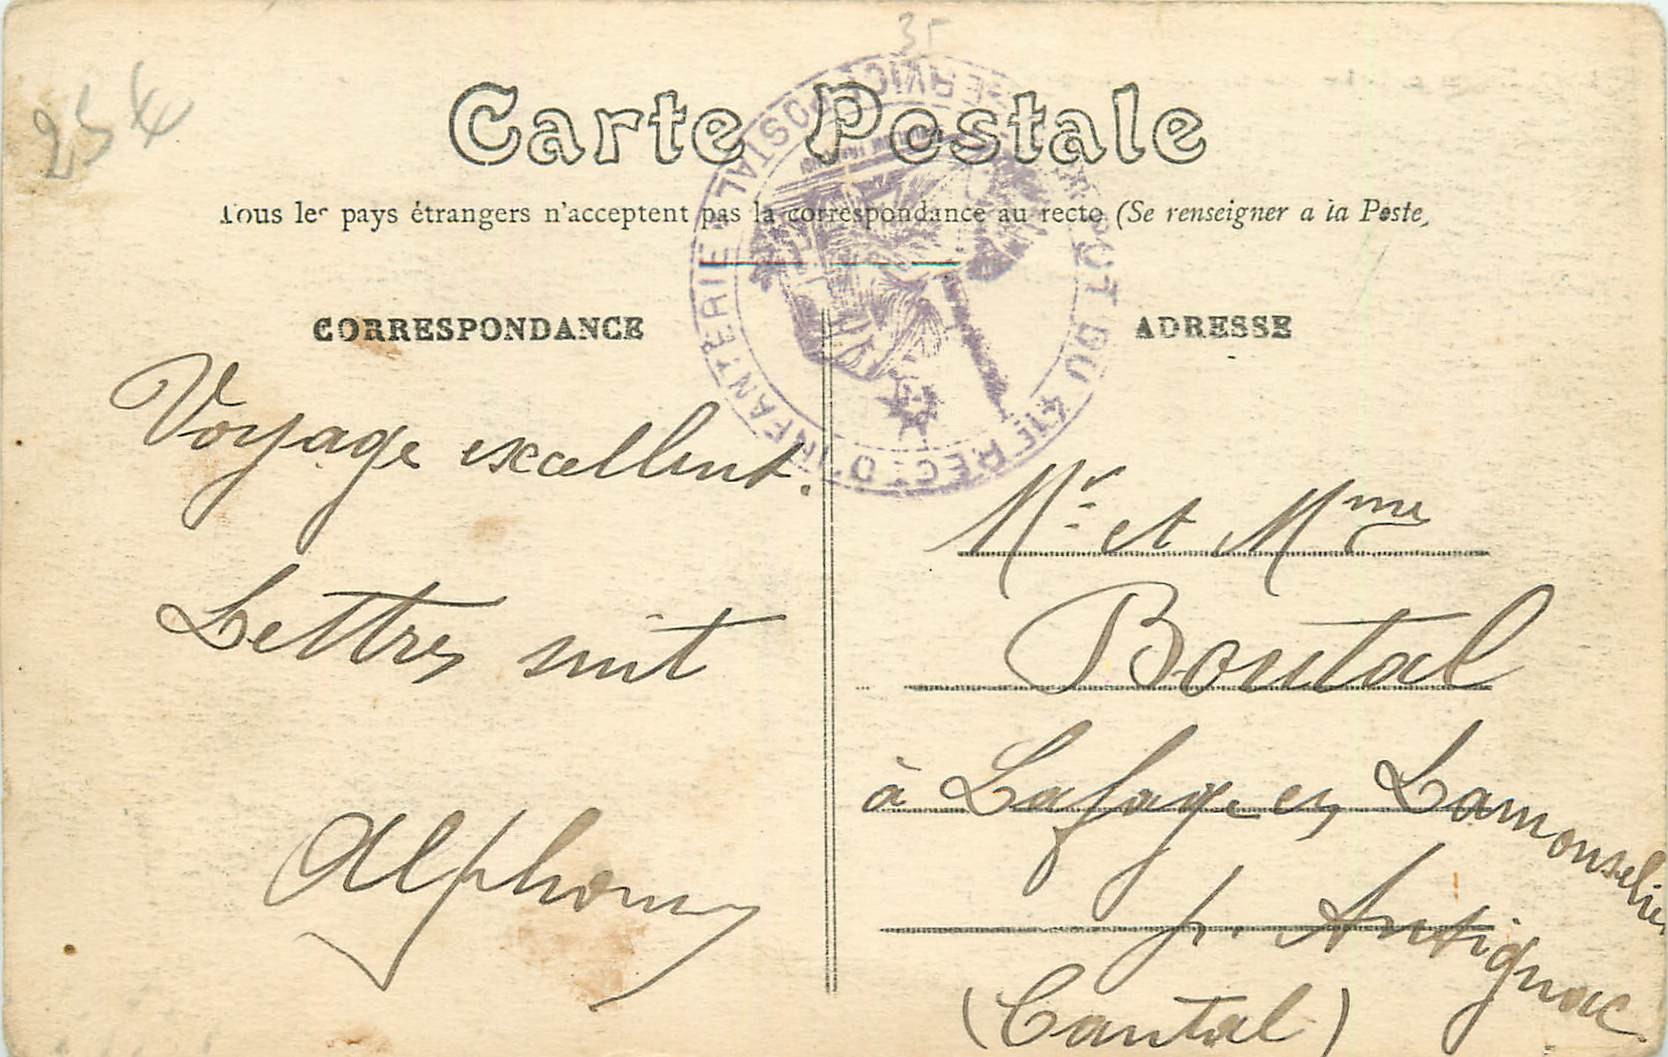 35
25 €
Carte Postale
Tous les pays étrangers n'acceptent pas la correspondance au recto (Se renseigner a la Poste,
SERVICE POSTAL
DU 41E REGT D'INFANTERIE
CORRESPONDANCE
Voyage excellent.
Lettres suit
Alphonse
ADRESSE
Mr. et Mme
Boutal
à Lafage en Lamonselie
p. Antignac
(Cantal)